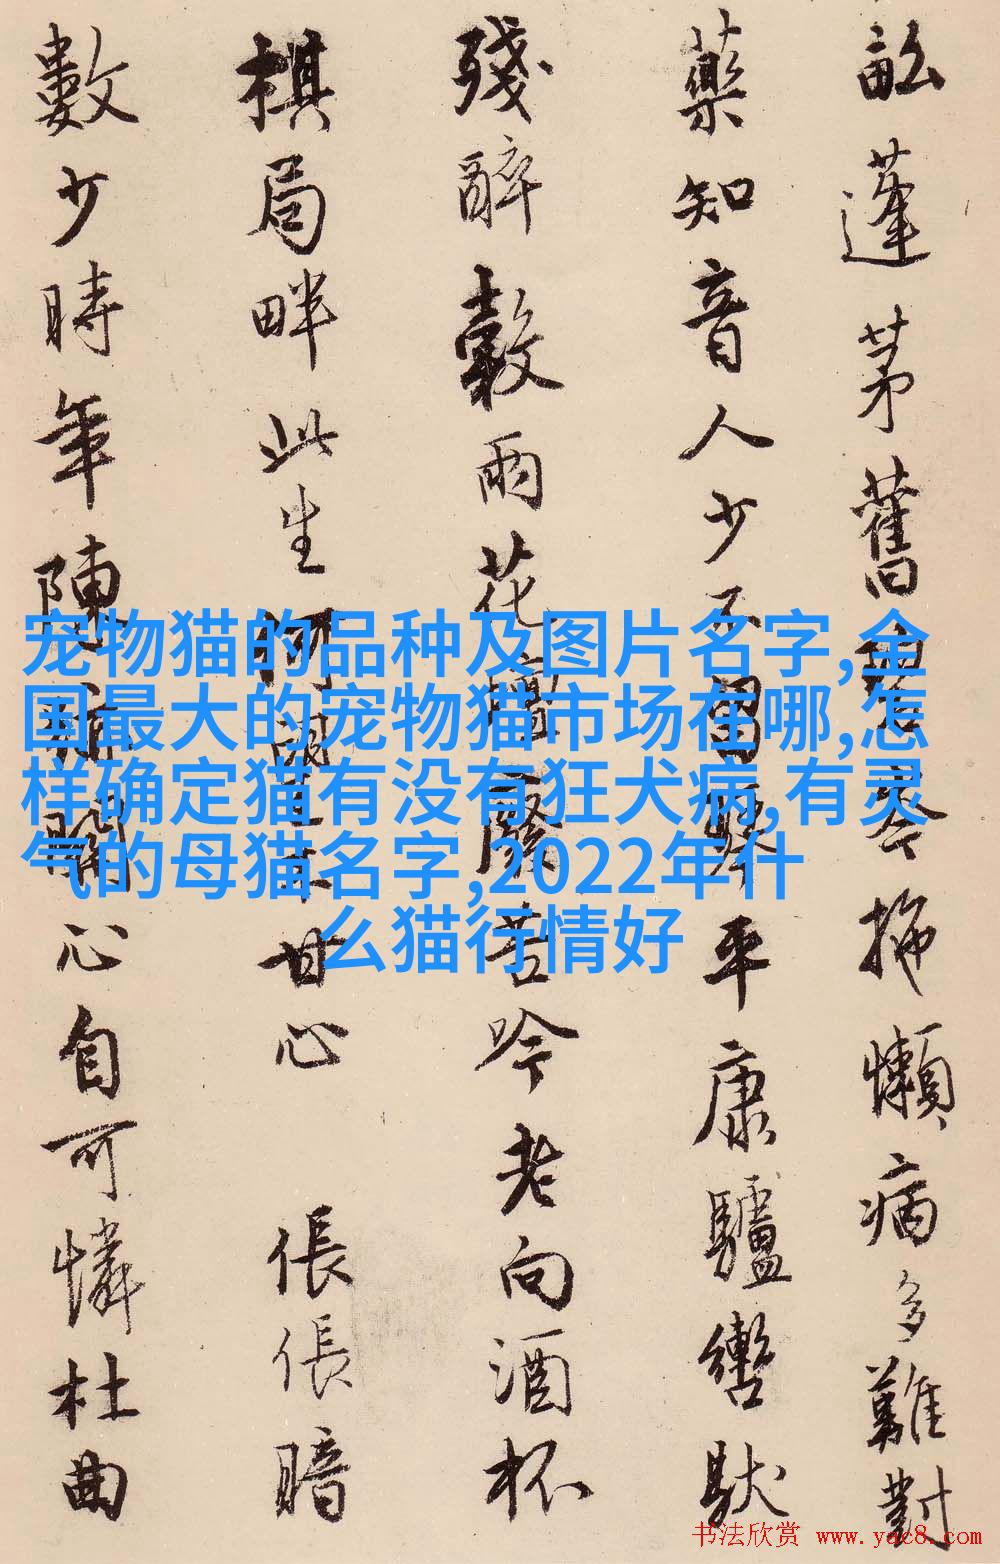 畝蓬茅舊今拖懶病多難對
藥知音人少不留平康驢轡馱
殘醉穀雨花廢苦吟老向酒杯
棋局畔此生何甘心 倀倀暗
數少時年陳心自可憐杜曲
宠物猫的品种及图片名字,全
国最大的宠物猫市场在哪,怎
样确定猫有没有狂犬病,有灵
气的母猫名字,2022年什
么猫行情好
书法欣赏 www.yac8.com